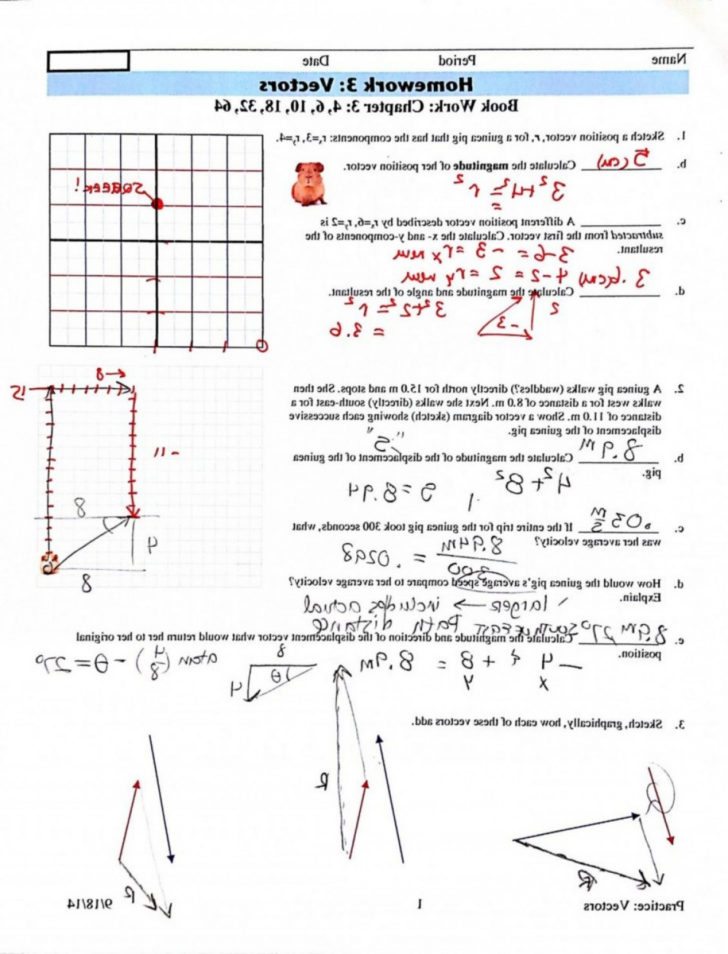 Name Period Date
Homework 3: Vectors
Book Work: Chapter 3: 4, 6, 10, 18, 32, 64
1. Sketch a position vector, r, for a guinea pig that has the components: rx=3, ry=4.
b. 5 (cm) Calculate the magnitude of her position vector.
3²+4²=r²
=
SQUEEK!
c. A different position vector described by rx=6, ry=2 is
subtracted from the first vector. Calculate the x- and y-components of the
resultant.
3-6 = -3 = rx new
4-2 = 2 = ry new
d. 3.6(cm) Calculate the magnitude and angle of the resultant.
2
-3
3²+2²=r²
= 3.6
2. A guinea pig walks (waddles?) directly north for 15.0 m and stops. She then
walks west for a distance of 8.0 m. Next she walks (directly) south-east for a
distance of 11.0 m. Show a vector diagram (sketch) showing each successive
displacement of the guinea pig.
←8
15
-11
8
4
8
"S"
b. 8.9 M Calculate the magnitude of the displacement of the guinea
pig.
4²+8²
= 8.94
c. .03 m/s If the entire trip for the guinea pig took 300 seconds, what
was her average velocity?
8.94m
300
= .0298
d. How would the guinea pig's average speed compare to her average velocity?
Explain.
larger → includes actual
path distance
e. 8.9m 27° SOUTHWEST Calculate the magnitude and direction of the displacement vector what would return her to her original
position.
-4 + 8 = 8.9m
x y
8
θ
4
atan (4/8) -θ=27°
3. Sketch, graphically, how each of these vectors add.
R
R
R
Practice: Vectors 1 9/18/14